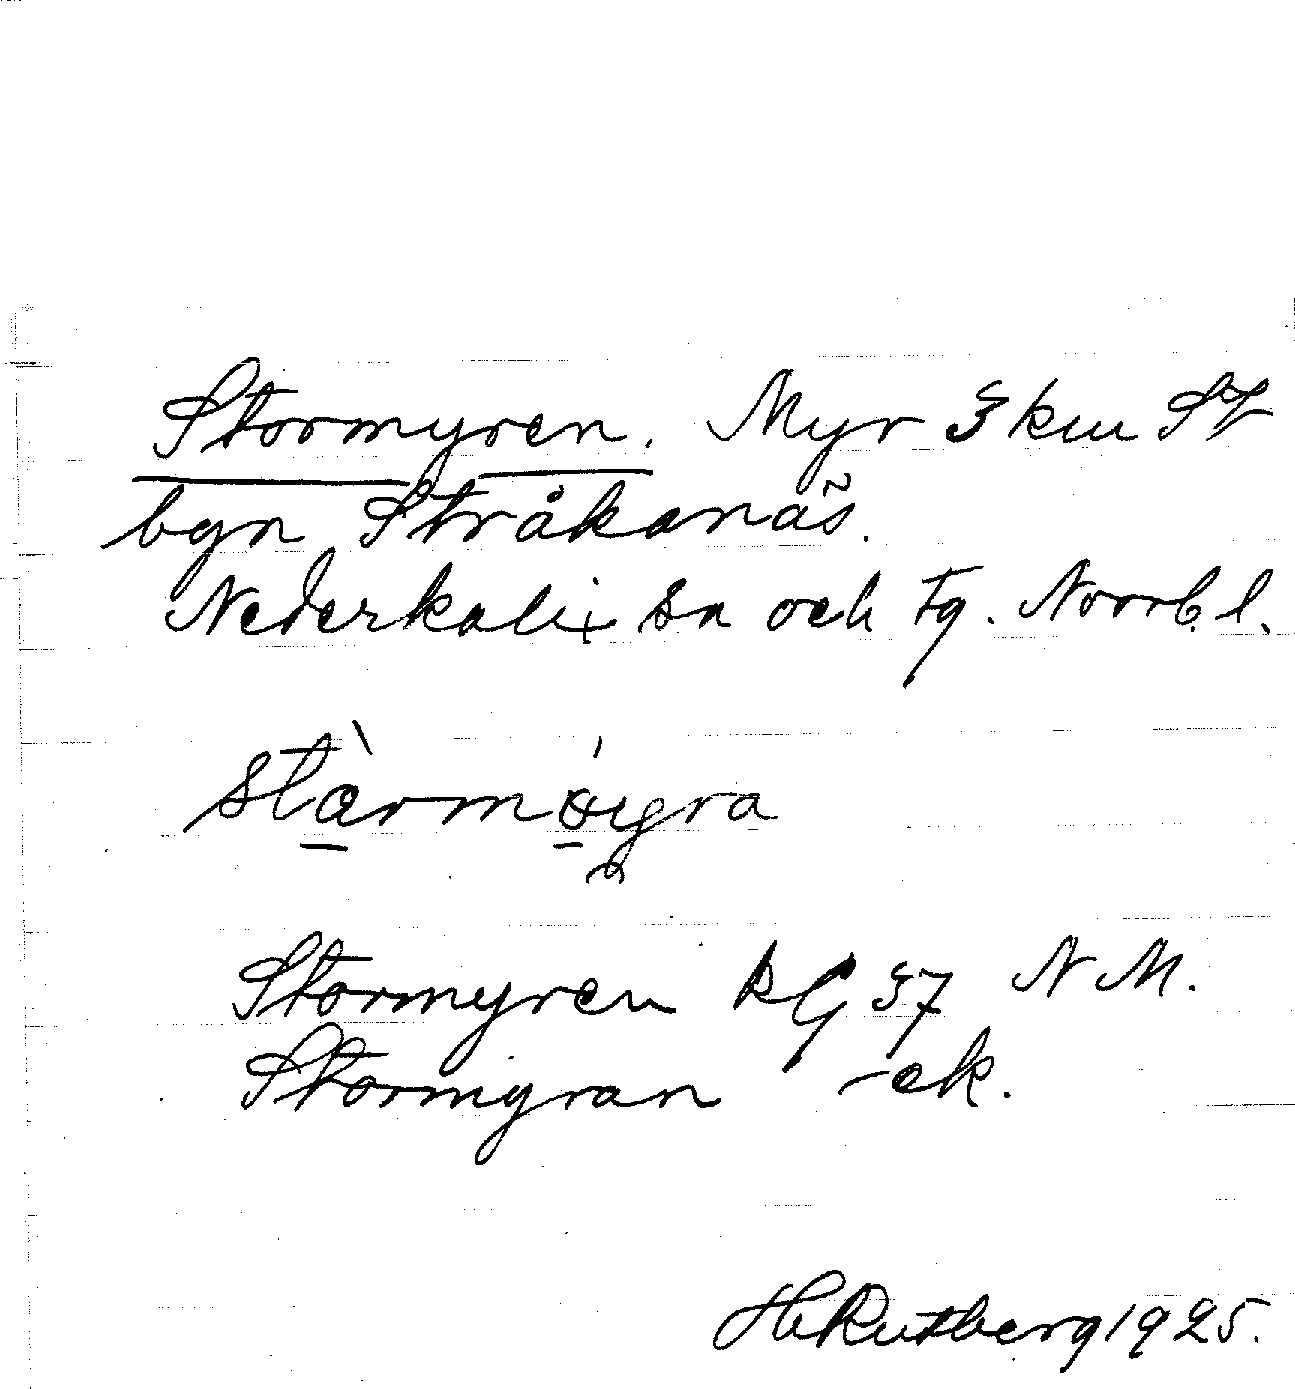 Stormyren. Myr 3 km SV
byn Stråkanäs.
Nederkalix sn och tg. Norrb. l.
stàrmǿyra
Stormyren kG 37 N M.
Stormyran -ek.
H Rutberg 1925.